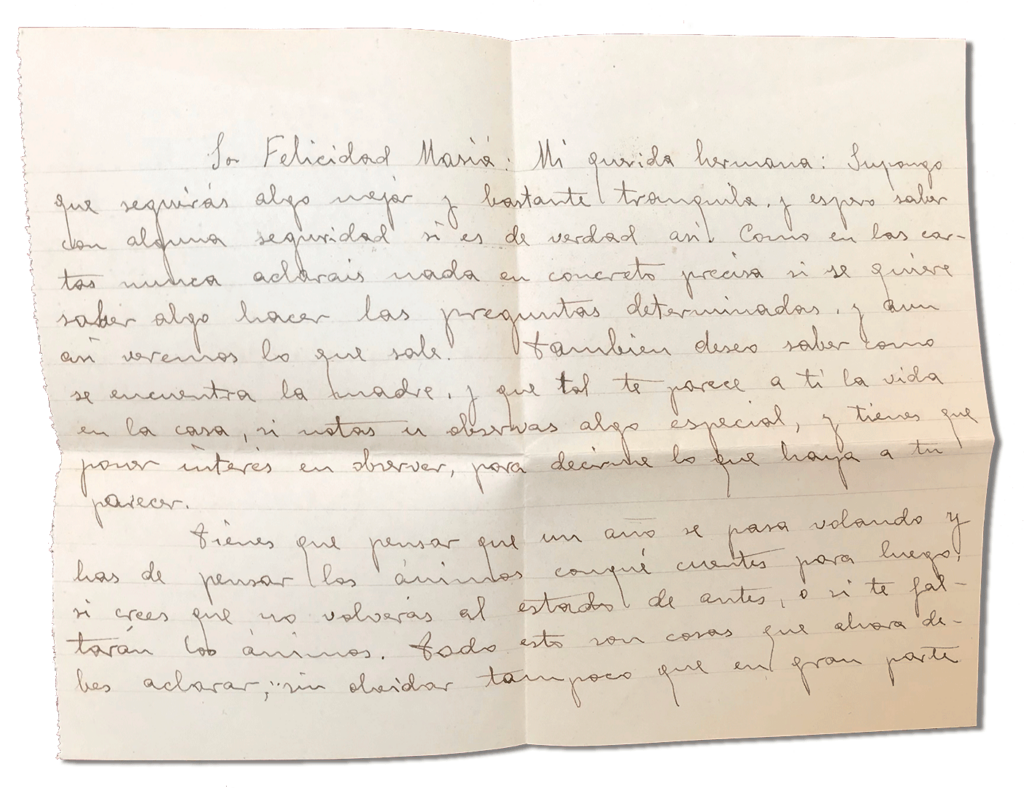 Sor Felicidad Mariá: Mi querida hermana: Supongo
que seguirás algo mejor y bastante tranquila, y espero saber
con alguna seguridad si es de verdad así. Como en las car-
tas nunca aclarais nada en concreto precisa si se quiere
saber algo hacer las preguntas determinadas, y aun
así veremos lo que sale. Tambien deseo saber como
se encuentra la madre, y que tal te parece a ti la vida
en la casa, si notas u observas algo especial, y tienes que
poner interés en observar, para decirme lo que haya a tu
parecer.
Tienes que pensar que un año se pasa volando y
has de pensar los ánimos conqué cuentes para luego,
si crees que no volverás al estado de antes, o si te fal-
tarán los ánimos. Todo esto son cosas que ahora de-
bes aclarar, sin olvidar tampoco que en gran parte